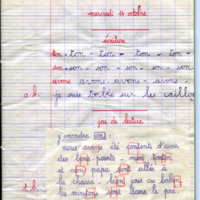 mercredi 14 octobre
écriture
ton - ton - ton - ton - ton -
son - son - son - son - son - son
avons avons - avons - avons -
je suis tombé sur les caillou
jeu de lecture
j'entoure on
nous avons été contents d'aune
des bons points - mon tonton
et mon papa sont allés à
la chasse - léon joue au ball
les moutons sont dans le pré